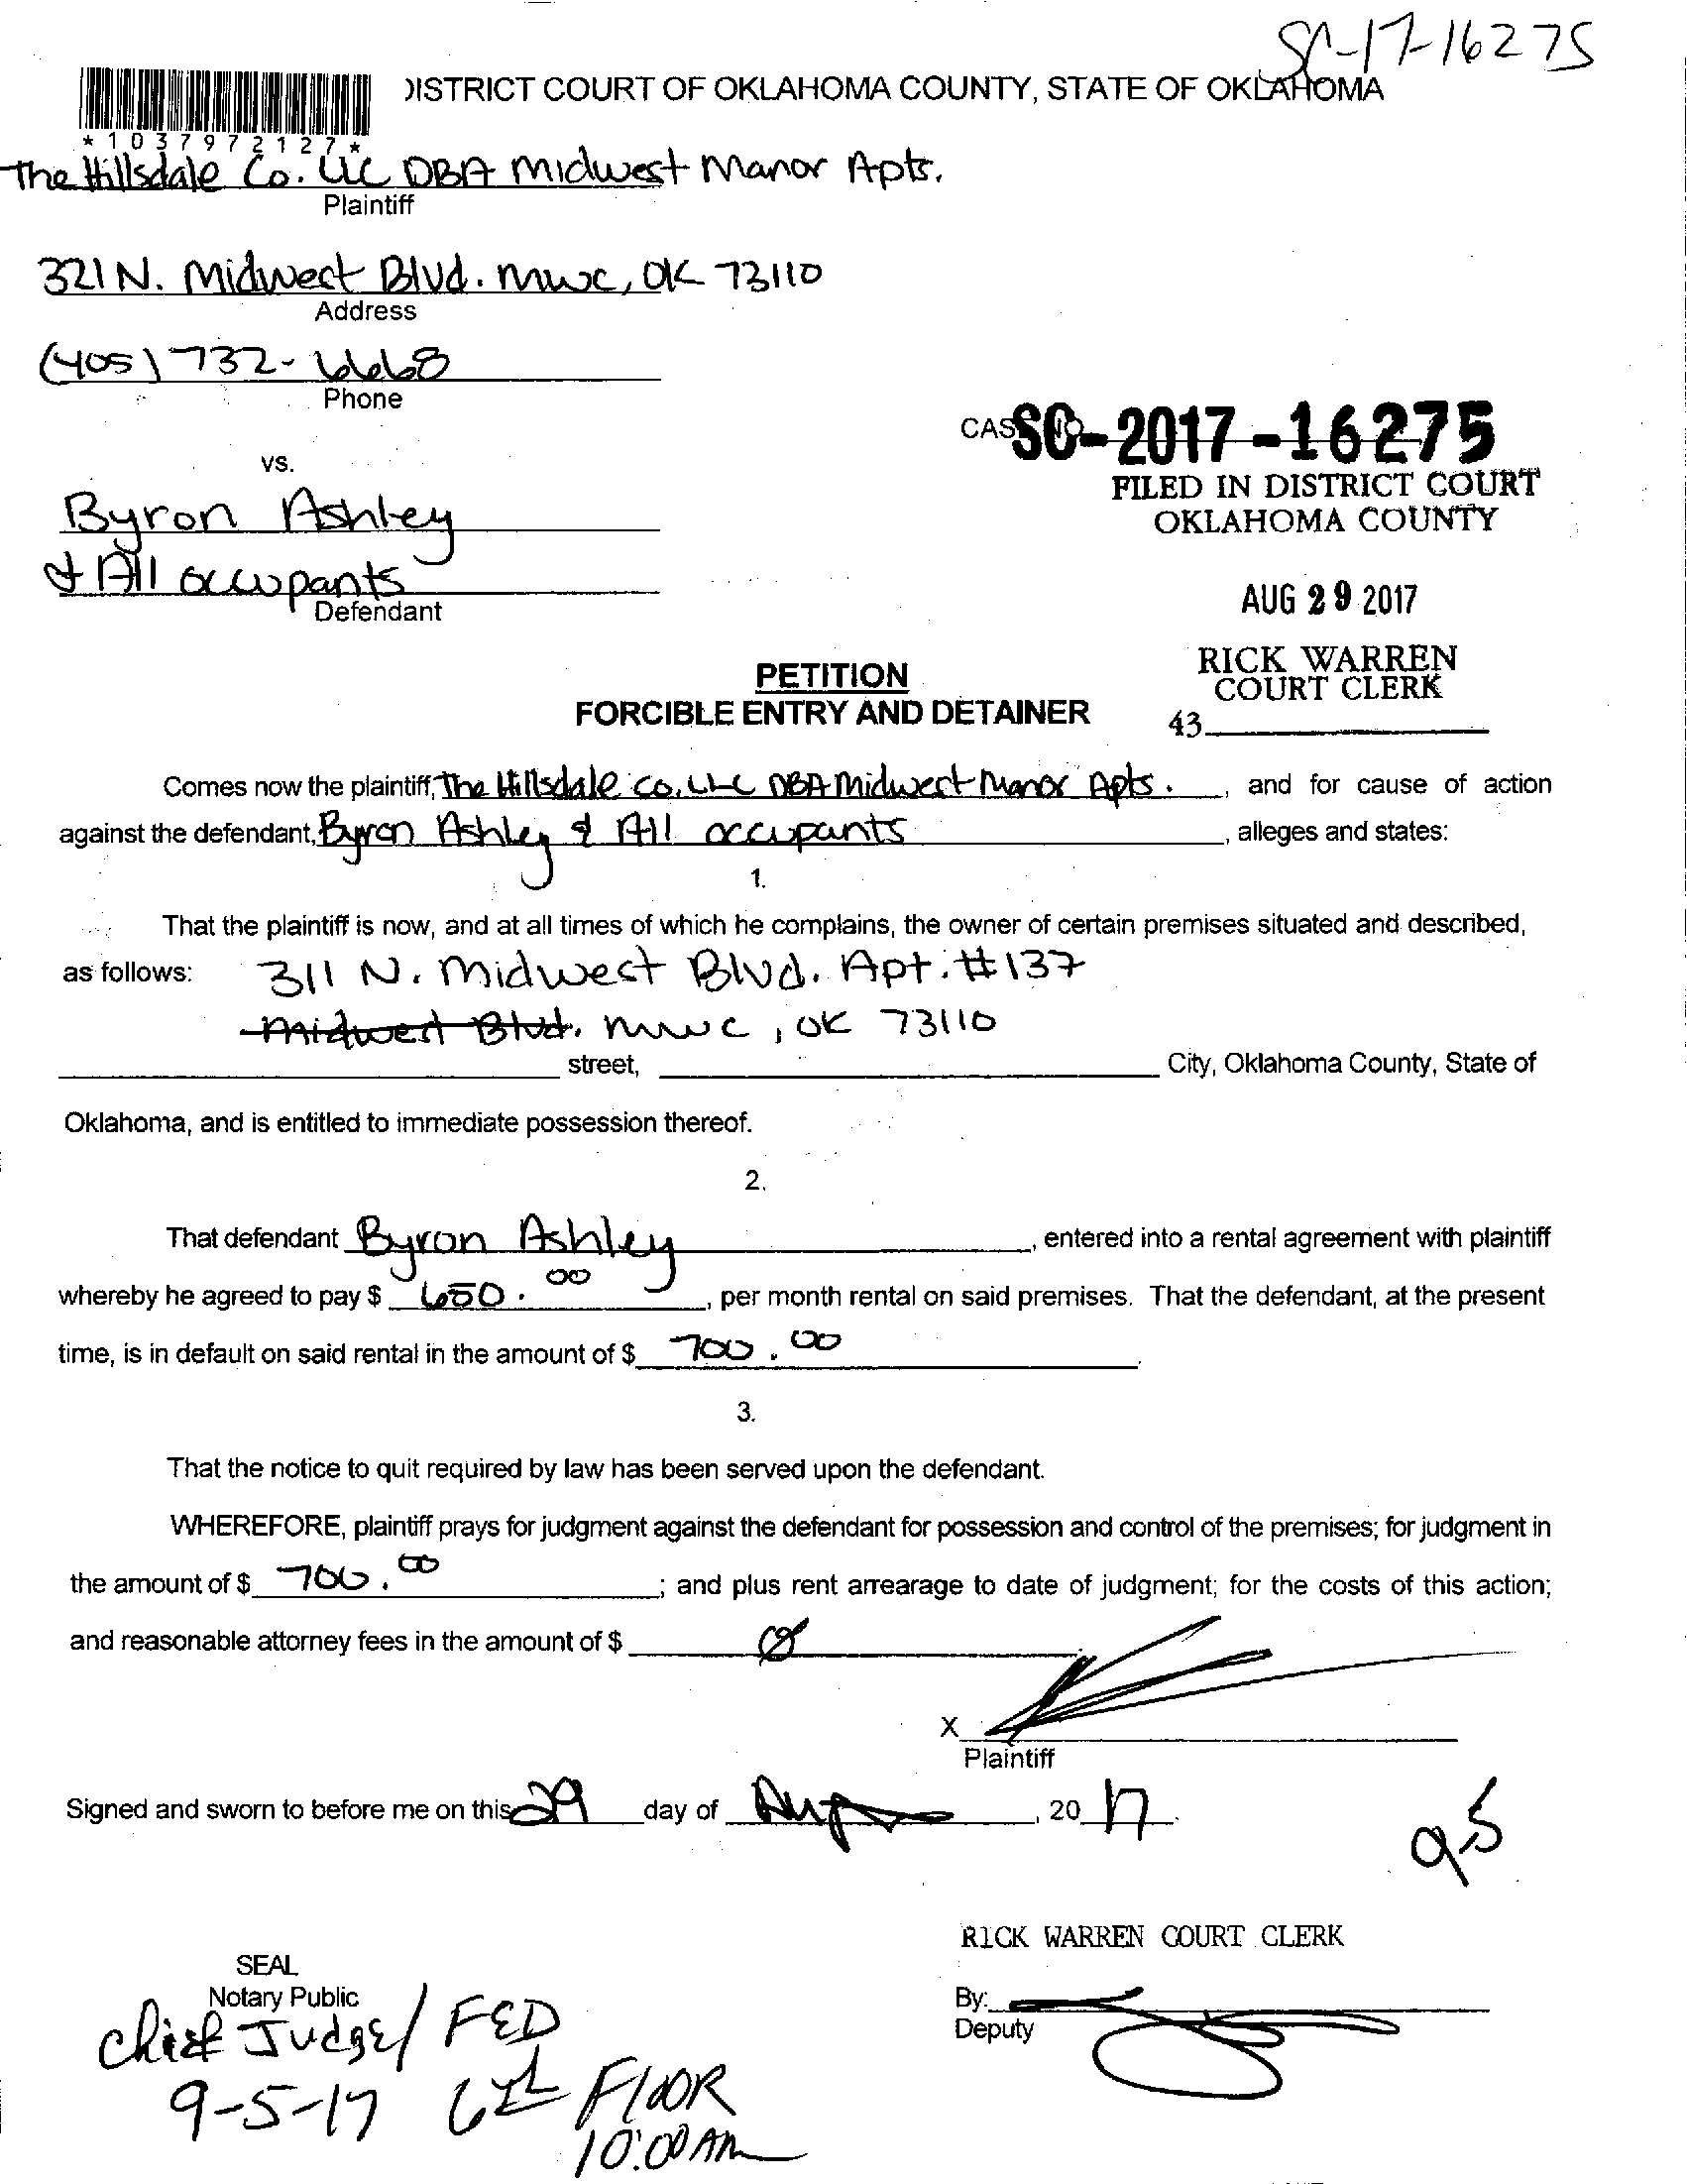 SC-17-16275
DISTRICT COURT OF OKLAHOMA COUNTY, STATE OF OKLAHOMA
*1037972127*
The Hillsdale Co. LLC DBA Midwest Manor Apts.
Plaintiff
321 N. Midwest Blvd. MWC, OK 73110
Address
(405) 732-6668
Phone
CASE NO. SC-2017-16275
FILED IN DISTRICT COURT
OKLAHOMA COUNTY
vs.
Byron Ashley
& All occupants
Defendant
AUG 29 2017
RICK WARREN
COURT CLERK
43
PETITION
FORCIBLE ENTRY AND DETAINER
Comes now the plaintiff, The Hillsdale Co. LLC DBA Midwest Manor Apts. , and for cause of action
against the defendant, Byron Ashley & All occupants , alleges and states:
1.
That the plaintiff is now, and at all times of which he complains, the owner of certain premises situated and described,
as follows: 311 N. Midwest Blvd. Apt. #137
Midwest Blvd. MWC, OK 73110
street, City, Oklahoma County, State of
Oklahoma, and is entitled to immediate possession thereof.
2.
That defendant Byron Ashley , entered into a rental agreement with plaintiff
whereby he agreed to pay $ 650.00 , per month rental on said premises. That the defendant, at the present
time, is in default on said rental in the amount of $ 700.00 .
3.
That the notice to quit required by law has been served upon the defendant.
WHEREFORE, plaintiff prays for judgment against the defendant for possession and control of the premises; for judgment in
the amount of $ 700.00 ; and plus rent arrearage to date of judgment; for the costs of this action;
and reasonable attorney fees in the amount of $ 0 .
X
Plaintiff
Signed and sworn to before me on this 29 day of Aug , 20 17 .
RICK WARREN COURT CLERK
SEAL
Notary Public
By:
Deputy
Chief Judge/ FED
9-5-17 6th Floor
10:00 AM